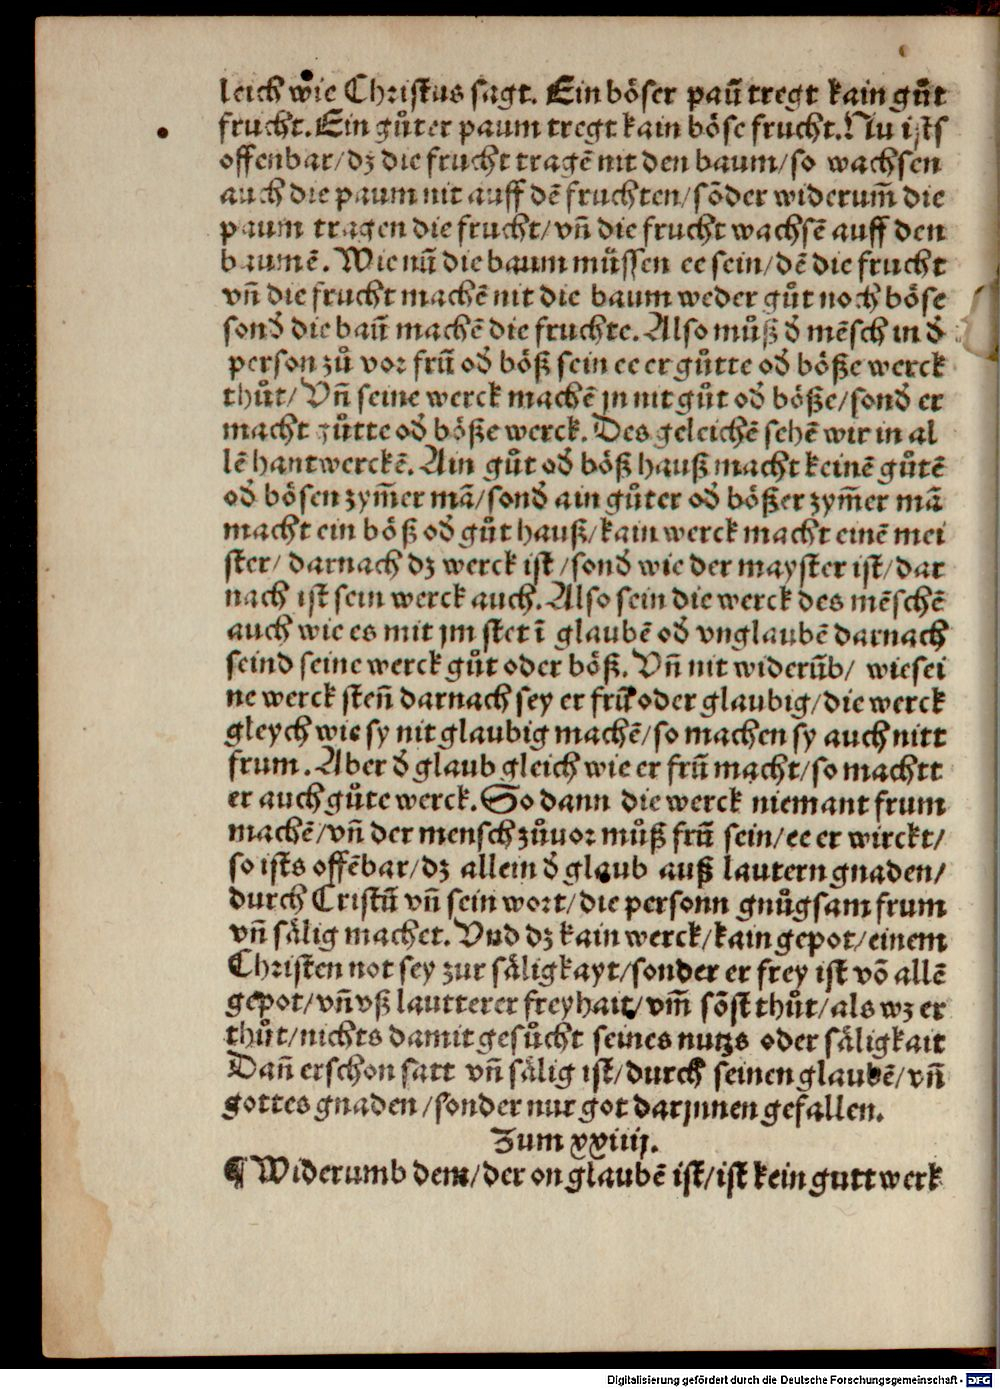 leich wie Christus sagt. Ein böser paū tregt kain gůt
frucht. Ein gůter paum tregt kain böse frucht. Nu ists
offenbar/dz die frucht tragē nit den baum/so wachsen
auch die paum nit auff dē fruchten/sōder widerum̄ die
paum tragen die frucht/vn̄ die frucht wachsē auff den
baumē. Wie nū die baum müssen ee sein/dē die frucht
vn̄ die frucht machē nit die baum weder gůt noch böse
sond̓ die baū machē die fruchte. Also můß d̓ mēsch in d̓
person zů vor frū od̓ böß sein ee er gůtte od̓ böße werck
thůt/ Vn̄ seine werck machē jn nit gůt od̓ böße/sond̓ er
macht gůtte od̓ böße werck. Des geleichē sehē wir in al
lē hantwerckē. Ain gůt od̓ böß hauß macht keinē gůtē
od̓ bösen zym̄er mā/sond̓ ain gůter od̓ bößer zym̄er mā
macht ein böß od̓ gůt hauß/kain werck macht einē mei
ster/ darnach dz werck ist/sond̓ wie der mayster ist/dar
nach ist sein werck auch. Also sein die werck des mēschē
auch wie es mit jm stet ī glaubē od̓ vnglaubē darnach
seind seine werck gůt oder böß. Vn̄ nit widerūb/ wie sei
ne werck sten̄ darnach sey er frū oder glaubig/die werck
gleych wie sy nit glaubig machē/so machen sy auch nitt
frum. Aber d̓ glaub gleich wie er frū macht/so machtt
er auch gůte werck. So dann die werck niemant frum
machē/vn̄ der mensch zůuor můß frū sein/ee er wirckt/
so ists offēbar/dz allein d̓ glaub auß lautern gnaden/
durch Cristū vn̄ sein wort/die personn gnůgsam frum
vn̄ sälig machet. Vnd dz kain werck/kain gepot/einem
Christen not sey zur säligkayt/sonder er frey ist vō allē
gepot/vn̄ vß lautterer freyhait/vm̄ sōst thůt/als wz er
thůt/nichts damit gesůcht seines nutzs oder säligkait
Dan̄ er schon satt vn̄ sälig ist/durch seinen glaubē/vn̄
gottes gnaden/sonder nur got darjnnen gefallen.
Zum xxiiij.
¶ Widerumb dem/der on glaubē ist/ist kein gutt werk
Digitalisierung gefördert durch die Deutsche Forschungsgemeinschaft - DFG